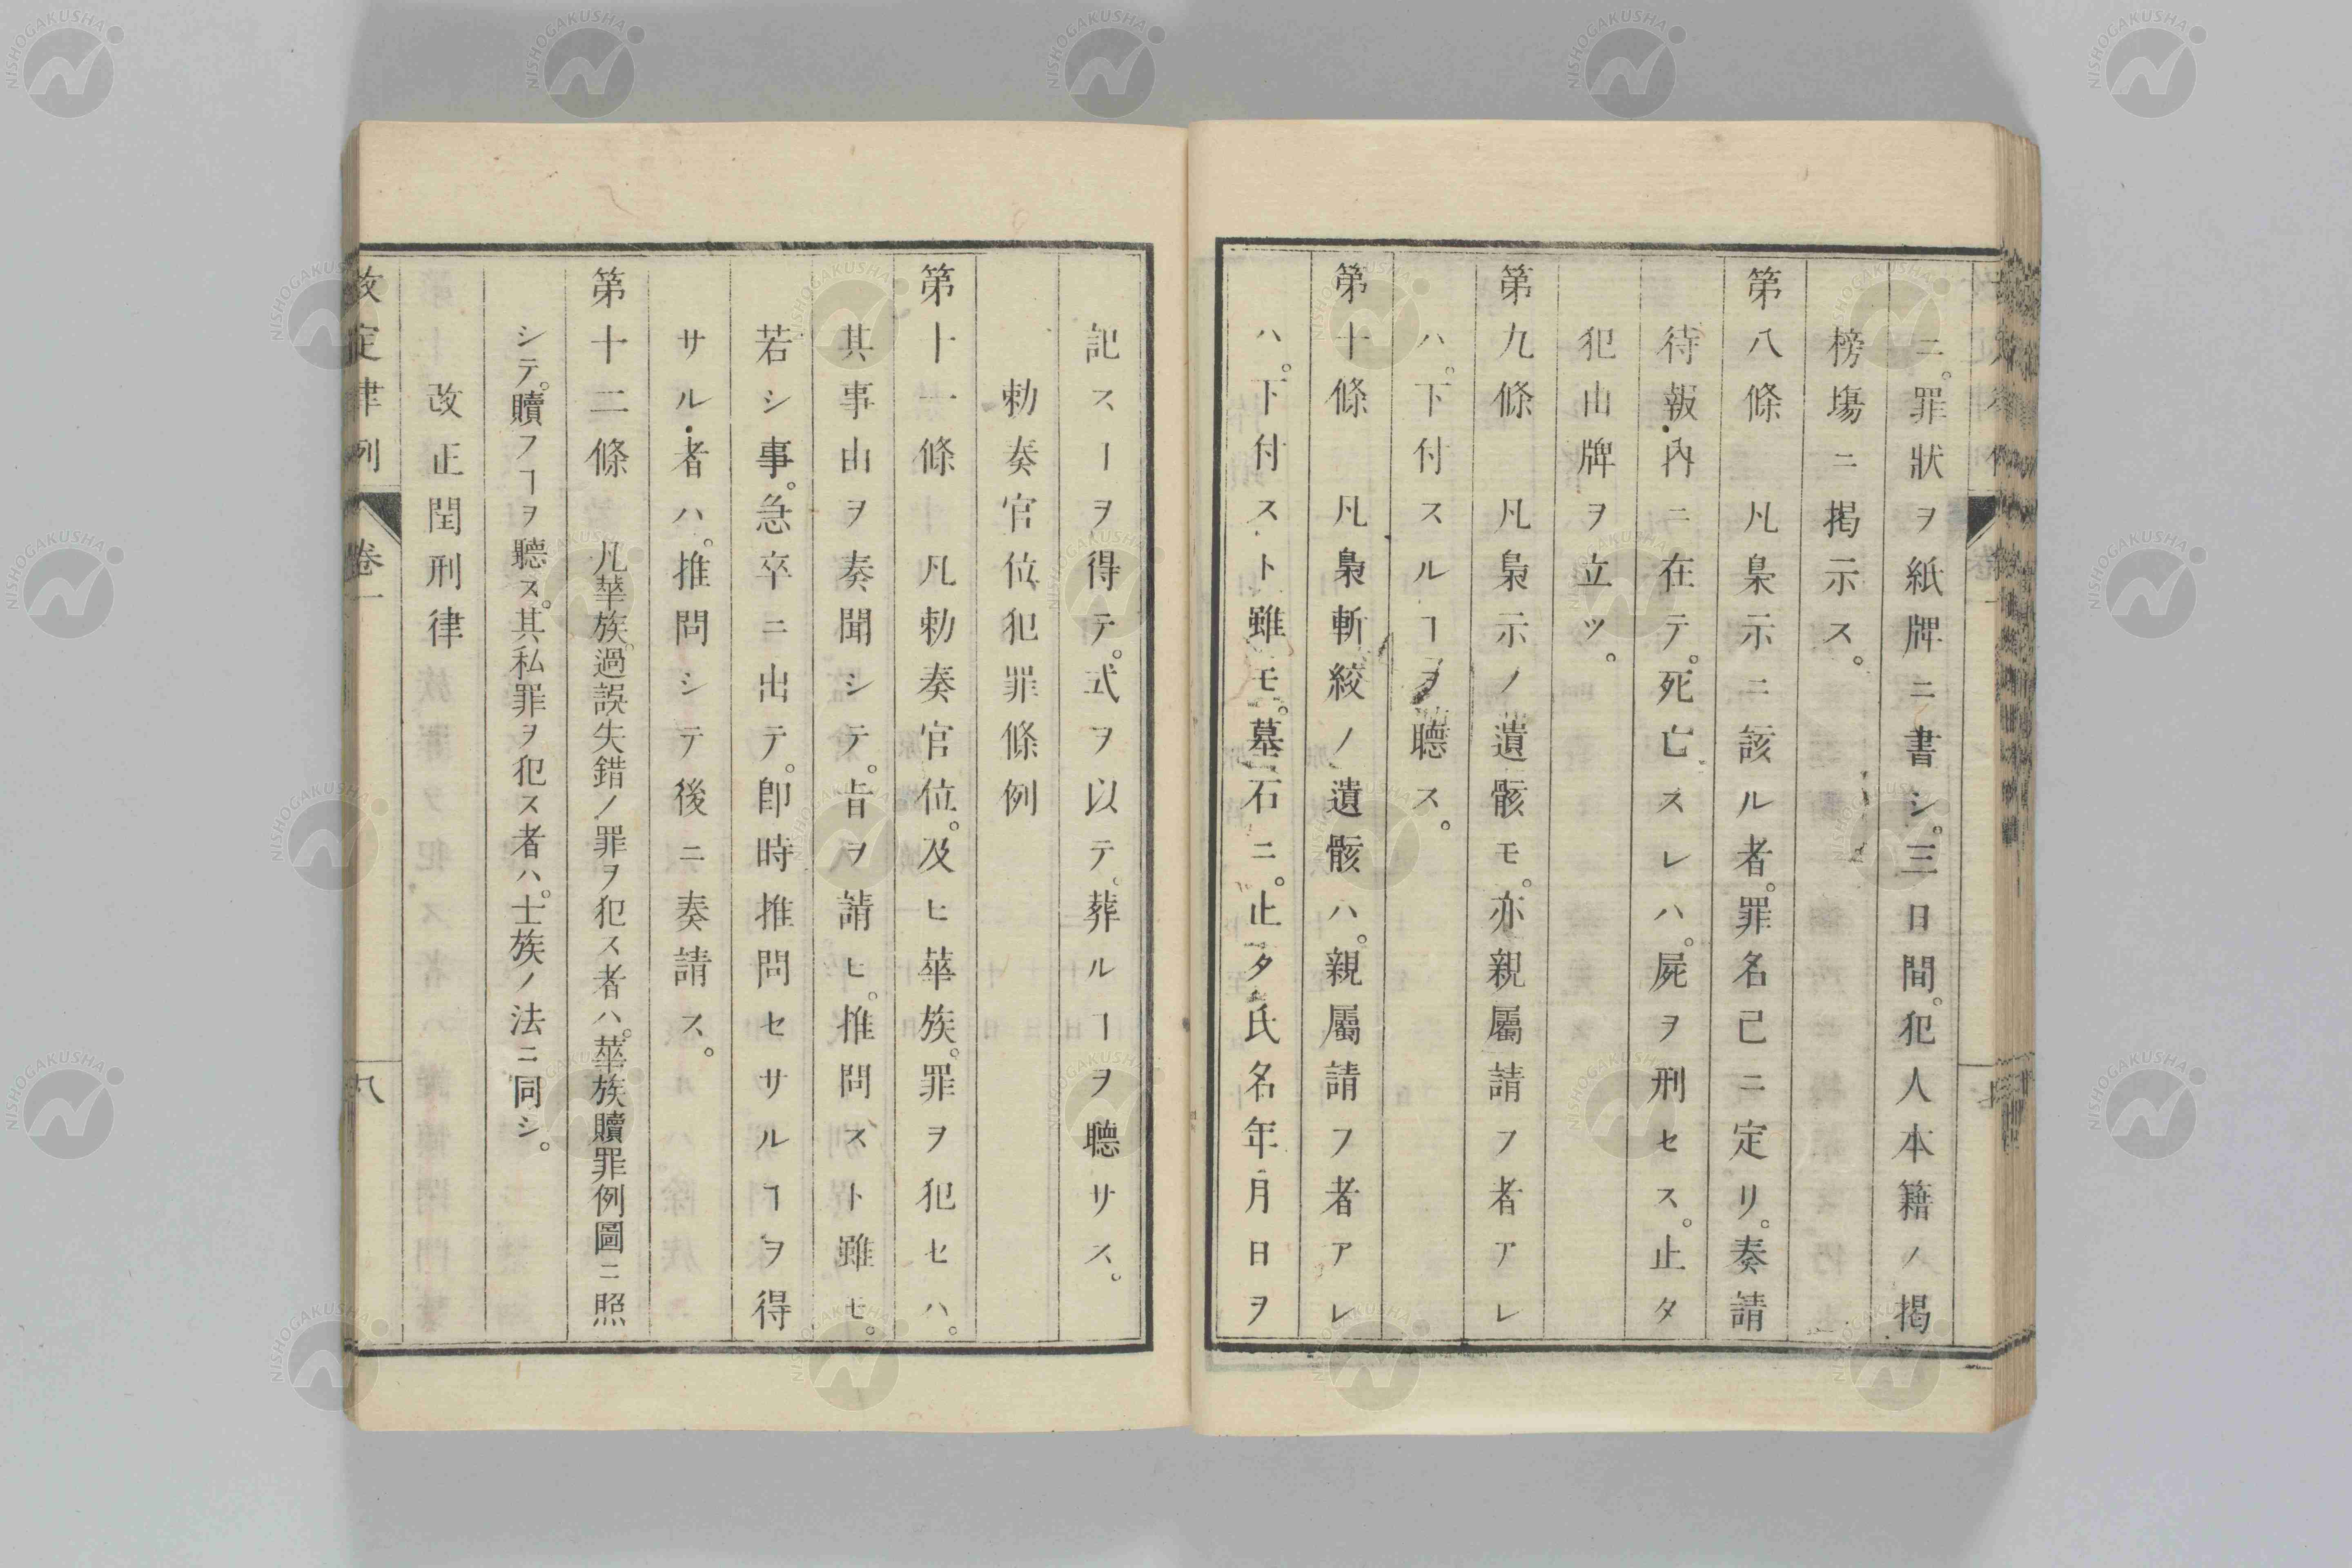 ニ。罪狀ヲ紙牌ニ書シ。三日間。犯人本籍ノ掲
榜塲ニ掲示ス。
第八條　凡梟示ニ該ル者。罪名己ニ定リ。奏請
待報內ニ在テ。死亡スレハ。屍ヲ刑セス。止タ
犯由牌ヲ立ツ。
第九條　凡梟示ノ遺骸モ。亦親屬請フ者アレ
ハ。下付スルヿヲ聽ス。
第十條　凡梟斬絞ノ遺骸ハ。親屬請フ者アレ
ハ。下付スト雖モ。墓石ニ。止タ氏名年月日ヲ
記スヿヲ得テ。式ヲ以テ。葬ルヿヲ聽サス。
勅奏官位犯罪條例
第十一條　凡勅奏官位。及ヒ華族。罪ヲ犯セハ。
其事由ヲ奏聞シテ。旨ヲ請ヒ。推問スト雖モ。
若シ事。急卒ニ出テ。卽時推問セサルヿヲ得
サル者ハ。推問シテ後ニ奏請ス。
第十二條　凡華族。過誤失錯ノ罪ヲ犯ス者ハ。華族贖罪例圖ニ照
シテ。贖フヿヲ聽ス。其私罪ヲ犯ス者ハ。士族ノ法ニ同シ。
改正閏刑律
改定律例　卷一　八
NISHOGAKUSHA